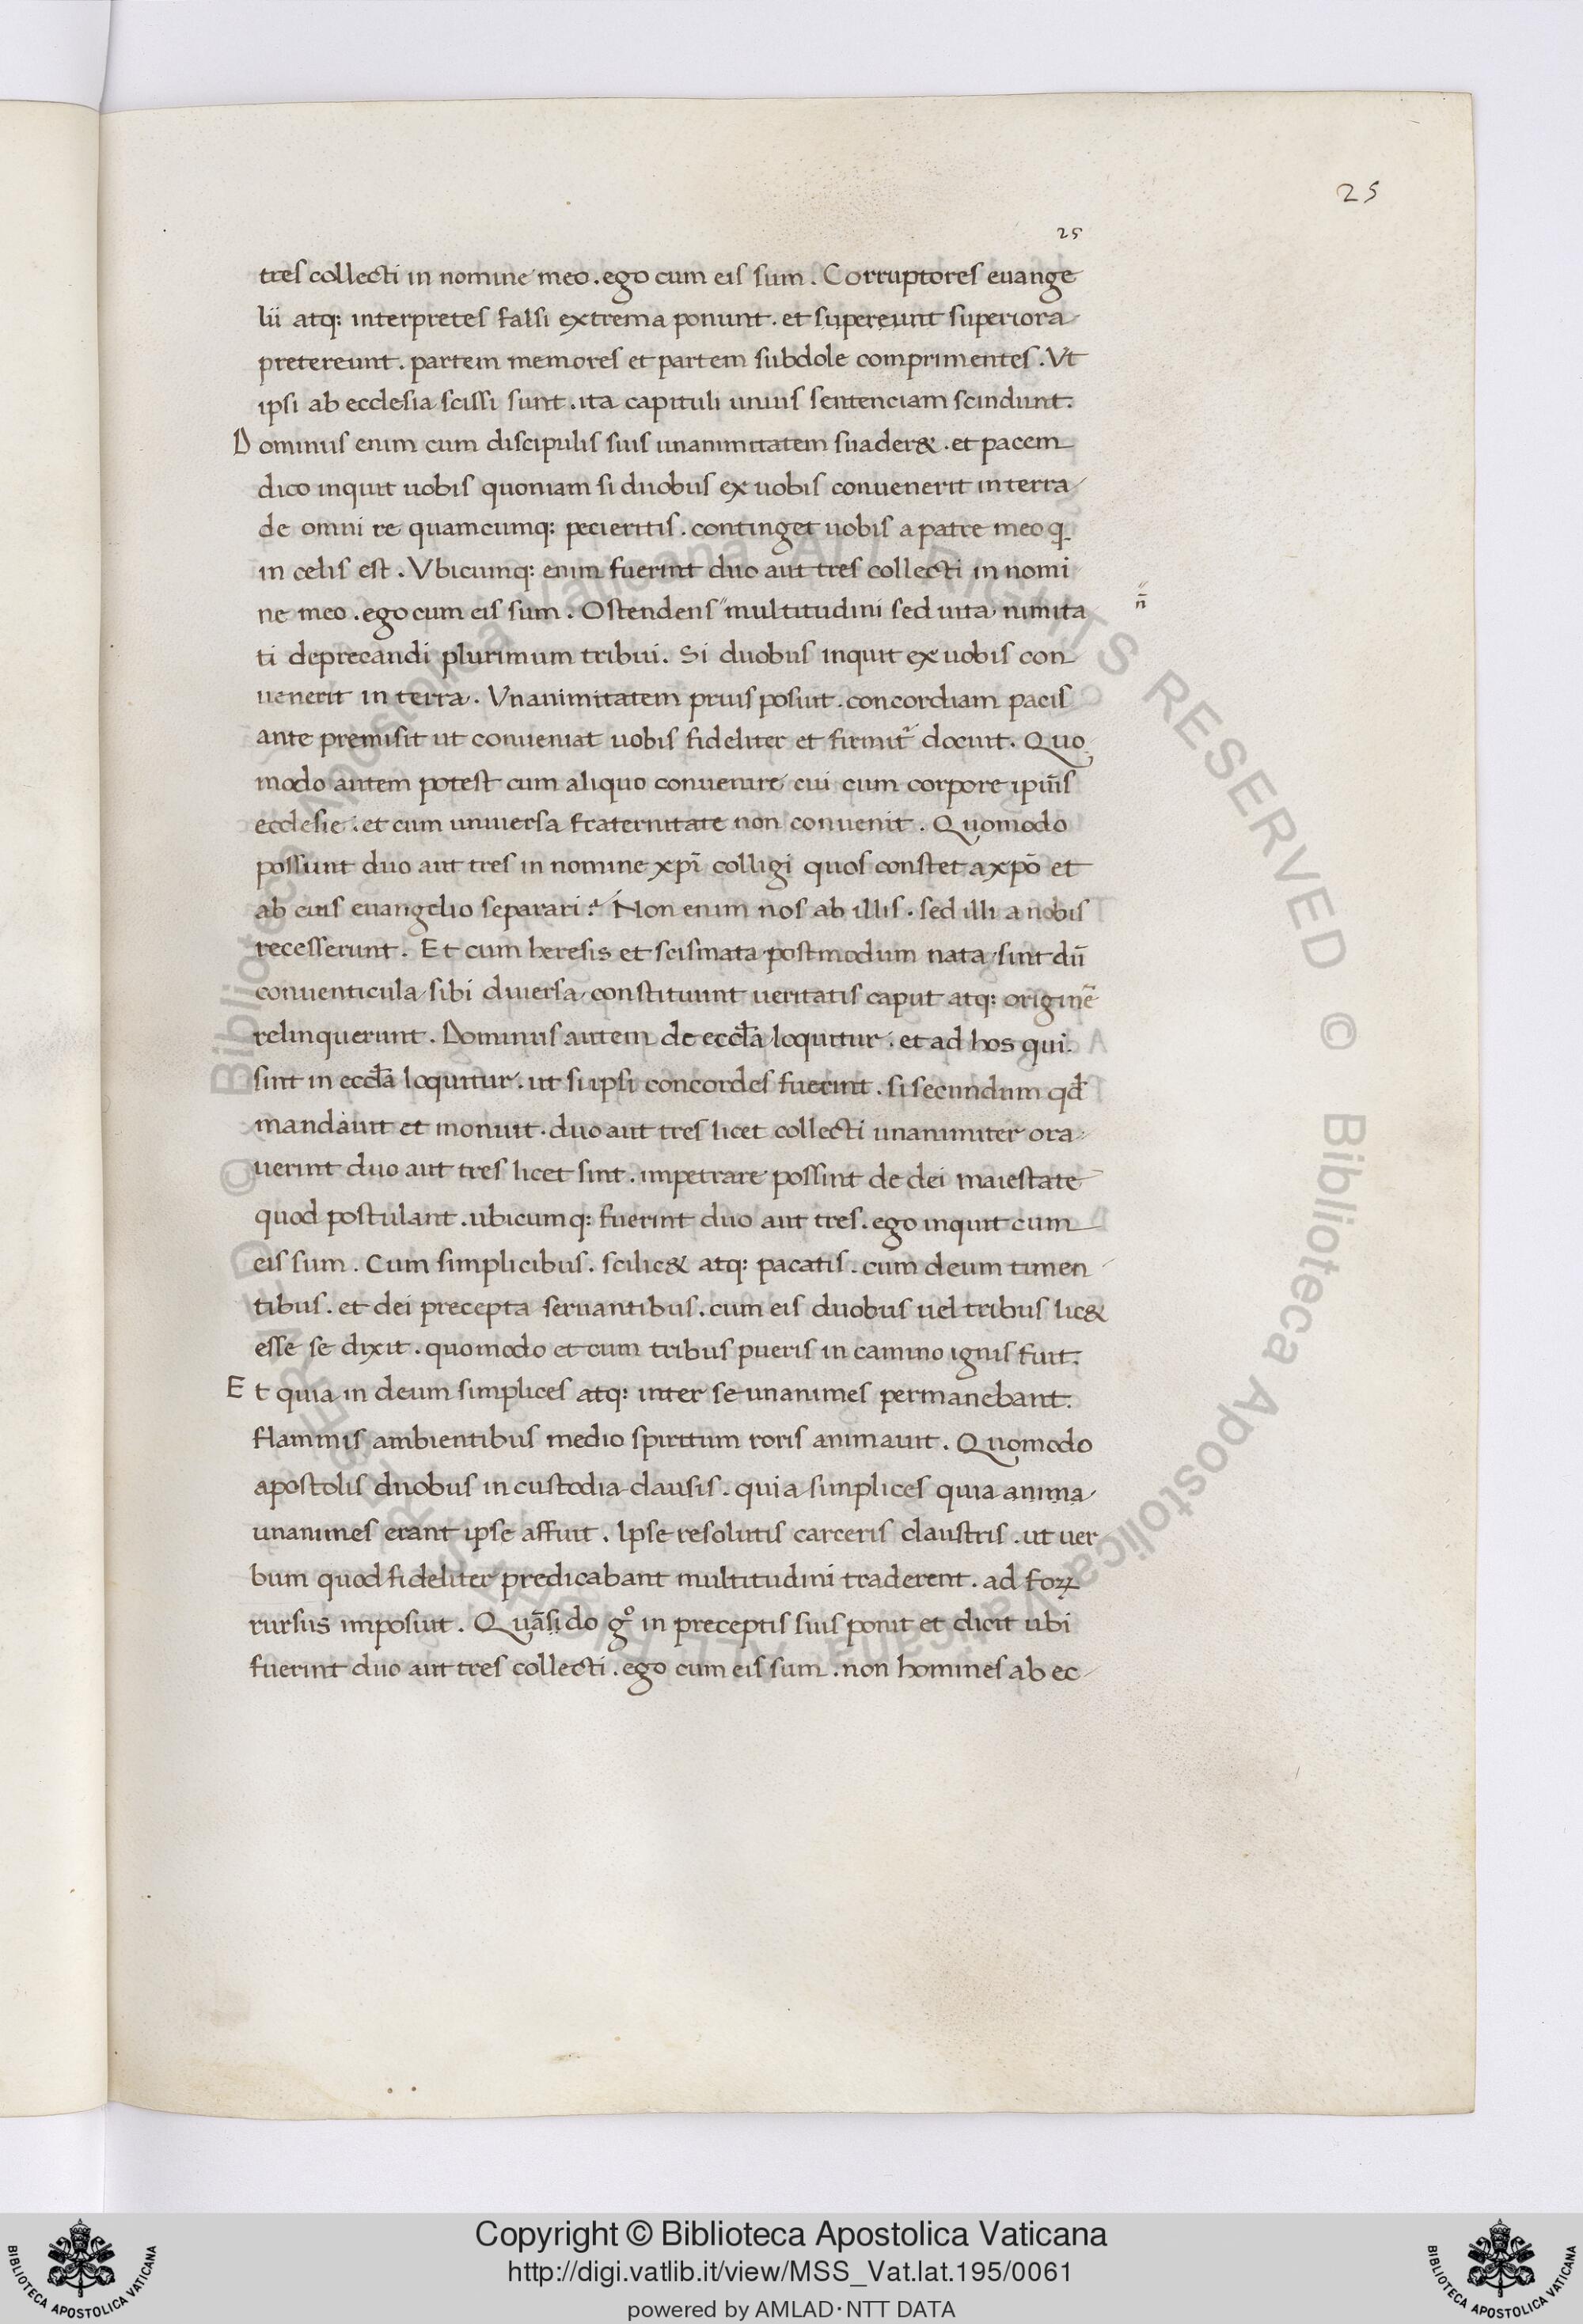 25
25
tres collecti in nomine meo. ego cum eis sum. Corruptores euange
lii atq: interpretes falsi extrema ponunt. et supereunt superiora
pretereunt. partem memores et partem subdole comprimentes. Vt
ipsi ab ecclesia scissi sunt. ita capituli unius sentenciam scindunt.
Dominus enim cum discipulis suis unanimitatem suader&. et pacem
dico inquit uobis quoniam si duobus ex uobis conuenerit in terra
de omni re quamcumq: pecieritis. continget uobis a patre meo q
in celis est. Vbicumq: enim fuerint duo aut tres collecti in nomi
ne meo. ego cum eis sum. Ostendens" multitudini sed uita nimita
n̄
ti deprecandi plurimum tribui. Si duobus inquit ex uobis con
uenerit in terra. Vnanimitatem prius posuit. concordiam pacis
ante premisit ut conueniat uobis fideliter et firmit͛ docuit. Quo
modo autem potest cum aliquo conuenire cui cum corpore ipiu̅s
ecclesie. et cum uniuersa fraternitate non conuenit. Quomodo
possunt duo aut tres in nomine xpi̅ colligi quos constet a xpo̅ et
ab eius euangelio separari? Non enim nos ab illis. sed illi a nobis
recesserunt. Et cum heresis et scismata postmodum nata sint du̅
conuenticula sibi diuersa constituunt ueritatis caput atq: origine̅
relinquerunt. Dominus autem de eccl̅a loquitur. et ad hos qui
sint in eccl̅a loquitur. ut si ipsi concordes fuerint. si secundum qd̅
mandauit et monuit. duo aut tres licet collecti unanimiter ora
uerint duo aut tres licet sint. impetrare possint de dei maiestate
quod postulant. ubicumq: fuerint duo aut tres. ego inquit cum
eis sum. Cum simplicibus. scilic& atq: pacatis. cum deum timen
tibus. et dei precepta seruantibus. cum eis duobus uel tribus lic&
esse se dixit. quomodo et cum tribus pueris in camino ignis fuit.
Et quia in deum simplices atq: inter se unanimes permanebant.
flammis ambientibus medio spiritum roris animauit. Quomodo
apostolis duobus in custodia clausis. quia simplices quia anima
unanimes erant ipse affuit. Ipse resolutis carceris claustris. ut uer
bum quod fideliter predicabant multitudini traderent. ad foꝝ
rursus imposuit. Qua̅sido gͦ in preceptis suis ponit et dicit ubi
fuerint duo aut tres collecti. ego cum eis sum. non homines ab ec
© Biblioteca Apostolica Vaticana ALL RIGHTS RESERVED © Biblioteca Apostolica Vaticana ALL RIGHTS RESERVED
Copyright © Biblioteca Apostolica Vaticana
http://digi.vatlib.it/view/MSS_Vat.lat.195/0061
powered by AMLAD·NTT DATA
BIBLIOTECA APOSTOLICA VATICANA
BIBLIOTECA APOSTOLICA VATICANA